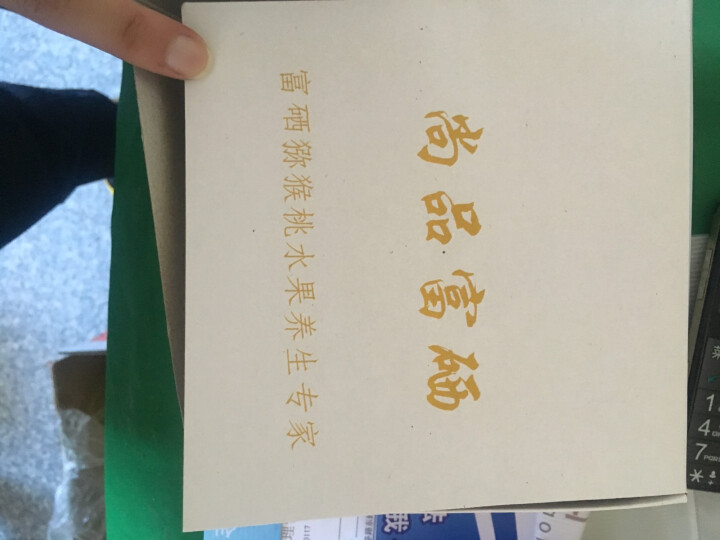 尚品富硒
富硒猕猴桃水果养生专家
1
4
7
*